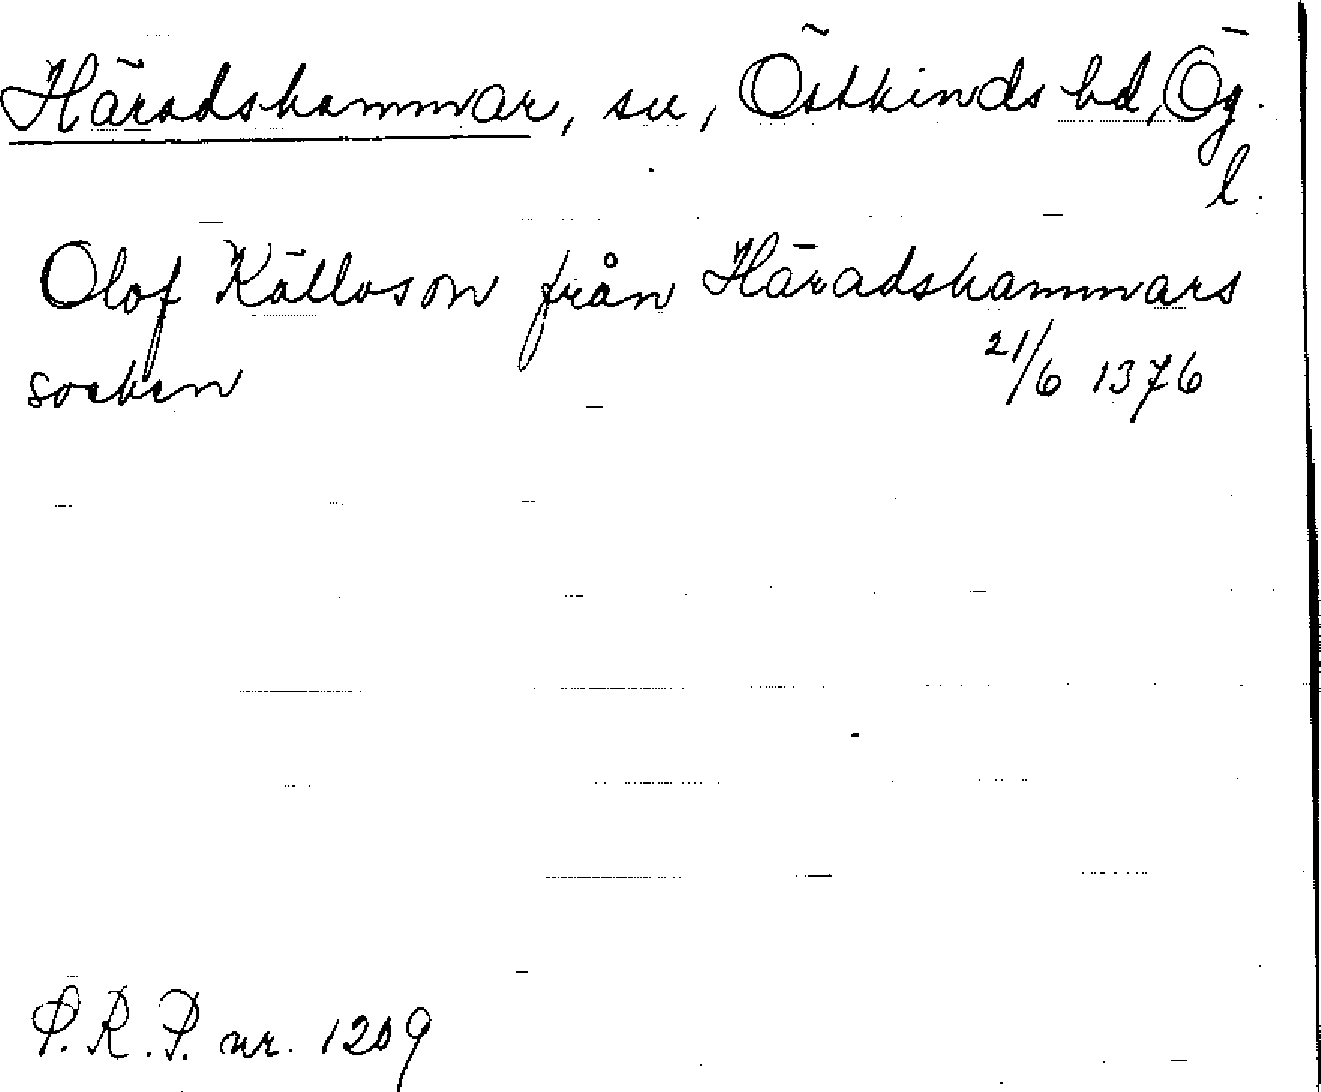 Häradshammar, sn, Östkinds hd, Ög.
l.
Olof Källoson från Häradshammars
socken 21/6 1376
P.R.P. nr. 1209